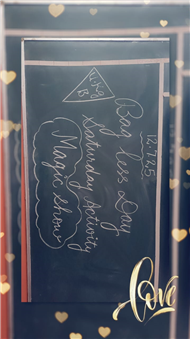 12.7.25
Bag less Day
Saturday Activity
Magic show
Love